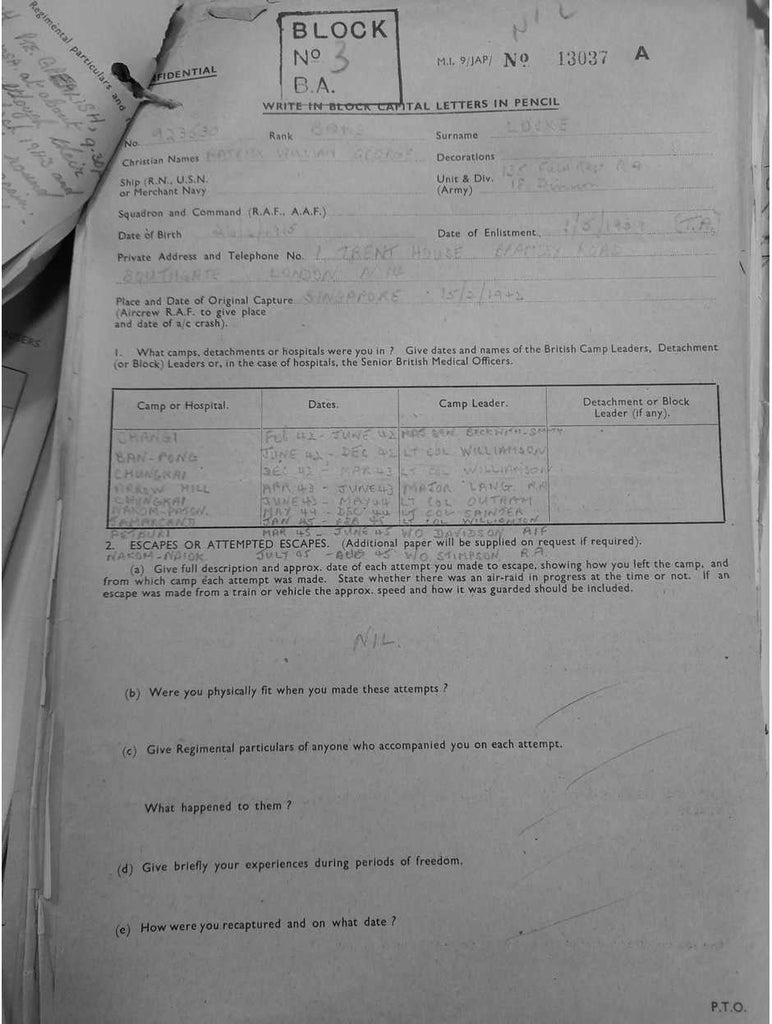 Regimental particulars and
NIL
BLOCK
No 3
B.A.
M.I. 9/JAP/ No 13037 A
FIDENTIAL
WRITE IN BLOCK CAPITAL LETTERS IN PENCIL
No. 923530 Rank Surname LOCKE
Christian Names WILLIAM GEORGE Decorations
Ship (R.N., U.S.N.
or Merchant Navy
Unit & Div. 135 Field Regt R.A
(Army) 18 Division
Squadron and Command (R.A.F., A.A.F.)
Date of Birth Date of Enlistment 1/5/1939 (T.A)
Private Address and Telephone No. 1 TRENT HOUSE ROAD
SOUTHGATE LONDON N 14
Place and Date of Original Capture SINGAPORE 15/2/1942
(Aircrew R.A.F. to give place
and date of a/c crash).
1. What camps, detachments or hospitals were you in ? Give dates and names of the British Camp Leaders, Detachment
(or Block) Leaders or, in the case of hospitals, the Senior British Medical Officers.
Camp or Hospital. Dates. Camp Leader. Detachment or Block
Leader (if any).
CHANGI FEB 42 - JUNE 42 MAJ GEN BECKWITH-SMITH
BAN-PONG JUNE 42 - DEC 42 LT COL WILLIAMSON
CHUNGKAI DEC 42 - MAR 43 LT COL WILLIAMSON
ARROW HILL APR 43 - JUNE 43 MAJOR LANG RA
CHUNGKAI JUNE 43 - MAY 44 LT COL OUTRAM
NAKOM-PATON. MAY 44 - DEC 44 LT COL SAINTER
TAMARCAND JAN 45 - FEB 45 LT COL WILLIAMSON
PETBURI MAR 45 - JUNE 45 W/O DAVIDSON AIF
2. ESCAPES OR ATTEMPTED ESCAPES. (Additional paper will be supplied on request if required).
NAKOM-NAIOK JULY 45 - AUG 45 W/O STIMPSON R.A.
(a) Give full description and approx. date of each attempt you made to escape, showing how you left the camp, and
from which camp each attempt was made. State whether there was an air-raid in progress at the time or not. If an
escape was made from a train or vehicle the approx. speed and how it was guarded should be included.
NIL.
(b) Were you physically fit when you made these attempts ?
(c) Give Regimental particulars of anyone who accompanied you on each attempt.
What happened to them ?
(d) Give briefly your experiences during periods of freedom.
(e) How were you recaptured and on what date ?
P.T.O.